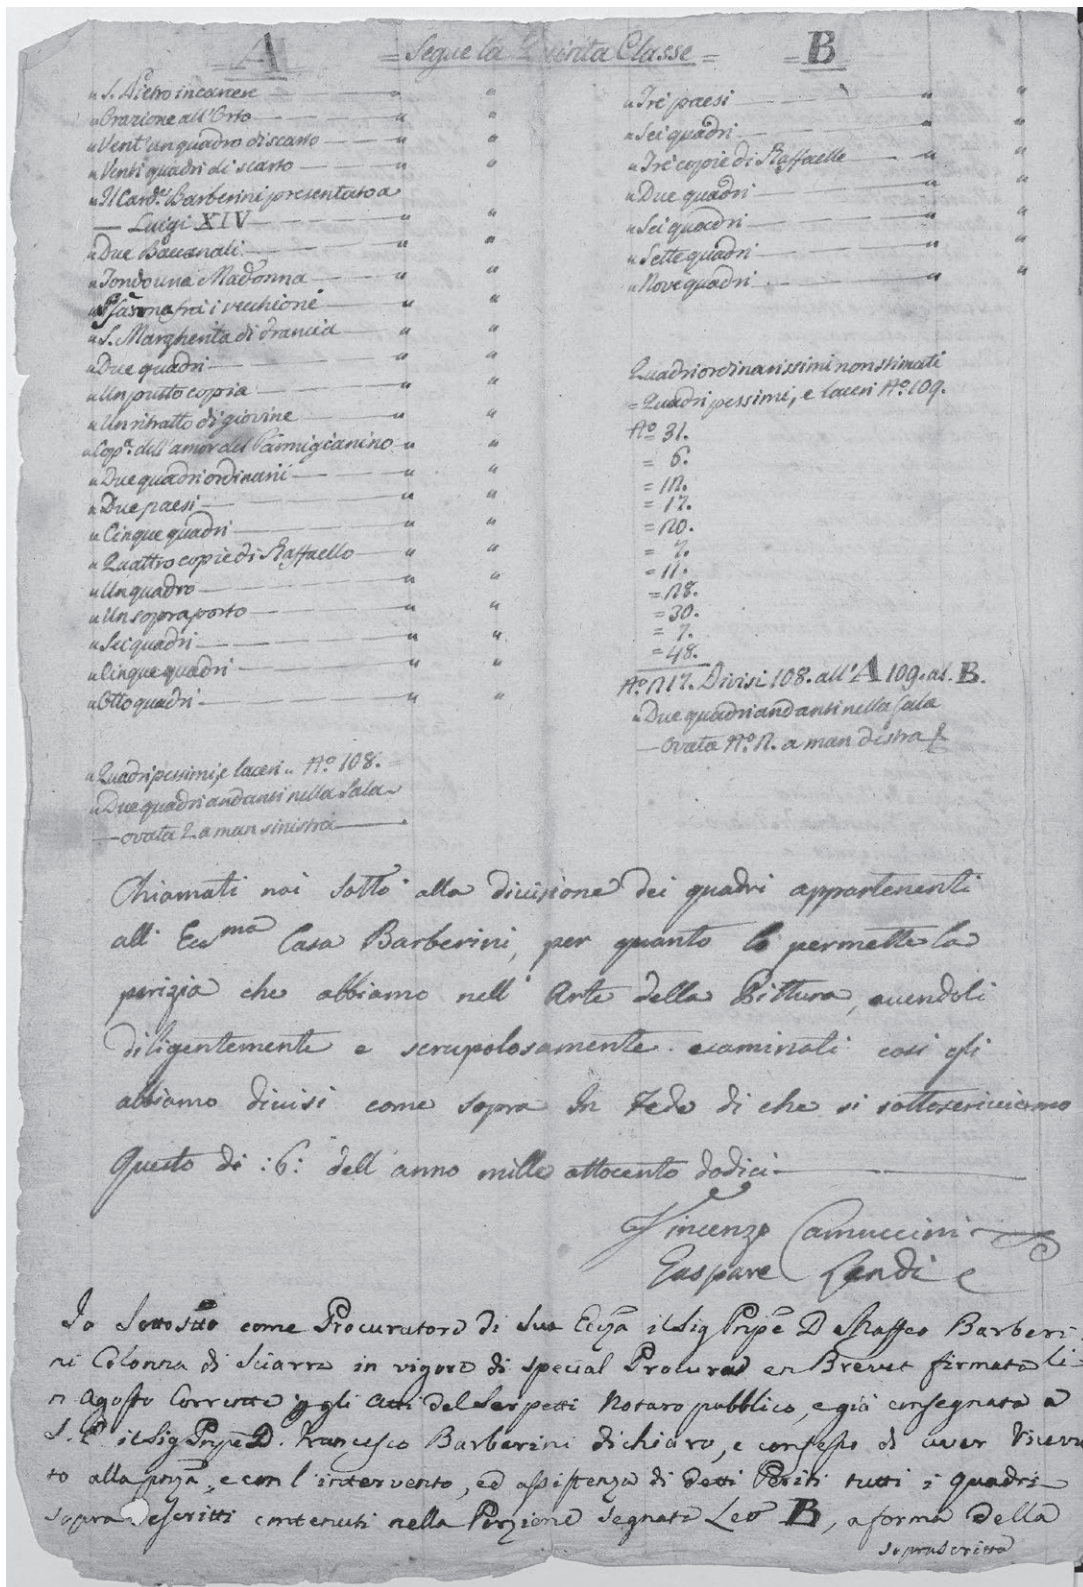 = A =
= Segue la Quinta Classe =
= B =
„ S. Pietro in carcere — „ „
„ Orazione all'Orto — „ „
„ Vent'un quadro di scarto — „ „
„ Venti quadri di scarto — „ „
„ Il Card.e Barberini presentato a
— Luigi XIV — „ „
„ Due Baccanali — „ „
„ Tondo una Madonna — „ „
„ Susanna frà i vecchioni — „ „
„ S. Margherita di Francia — „ „
„ Due quadri — „ „
„ Un putto copia — „ „
„ Un ritratto di giovine — „ „
„ Cop.a dell'amor del Parmigianino „ „
„ Due quadri ordinarii — „ „
„ Due paesi — „ „
„ Cinque quadri — „ „
„ Quattro copie di Raffaello — „ „
„ Un quadro — „ „
„ Un sopraporto — „ „
„ Sei quadri — „ „
„ Cinque quadri — „ „
„ Otto quadri — „ „
„ Quadri pessimi, e laceri „ No. 108. =
„ Due quadri andanti nella Sala
— ovata 2 a man sinistra —
„ Tré paesi — „ „
„ Sei quadri — „ „
„ Tré copie di Raffaelle — „ „
„ Due quadri — „ „
„ Sei quadri — „ „
„ Sette quadri — „ „
„ Nove quadri — „ „
Quadri ordinarissimi non stimati
= Quadri pessimi, e laceri No. 109.
No. 31.
= 6.
= 12.
= 17.
= 20.
= 7.
= 11.
= 28.
= 30.
= 7.
= 48.
No. 217. Divisi 108. all'A 109. al B.
„ Due quadri andanti nella Sala
— ovata No. 2. a man destra
Chiamati noi sotto alla divisione dei quadri appartenenti
all' Ecc.ma Casa Barberini, per quanto lo permette la
perizia che abbiamo nell' Arte della Pittura, avendoli
diligentemente e scrupolosamente esaminati cosi gli
abbiamo divisi come sopra In Fede di che si sottoscriviamo
Questo di :6: dell'anno mille ottocento dodici —
Vincenzo Camuccini
Gaspare Landi
Io Sottostto come Procuratore di Sua Ecc̃za il Sig Pñpe D Maffeo Barberi-
ni Colonna di Sciarra in vigore di special Procura en Brevet firmata li
2 Agosto Corrente p gli Atti del Serpetti Notaro pubblico, e già consegnata a
S. E. il Sig Pñpe D. Francesco Barberini dichiaro, e confesso di aver ricevu
to alla pñza, e con l'intervento, ed assistenza di detti Periti tutti i quadri
sopra descritti contenuti nella Porzione segnata Letr̃a B, a forma della
soprascritta